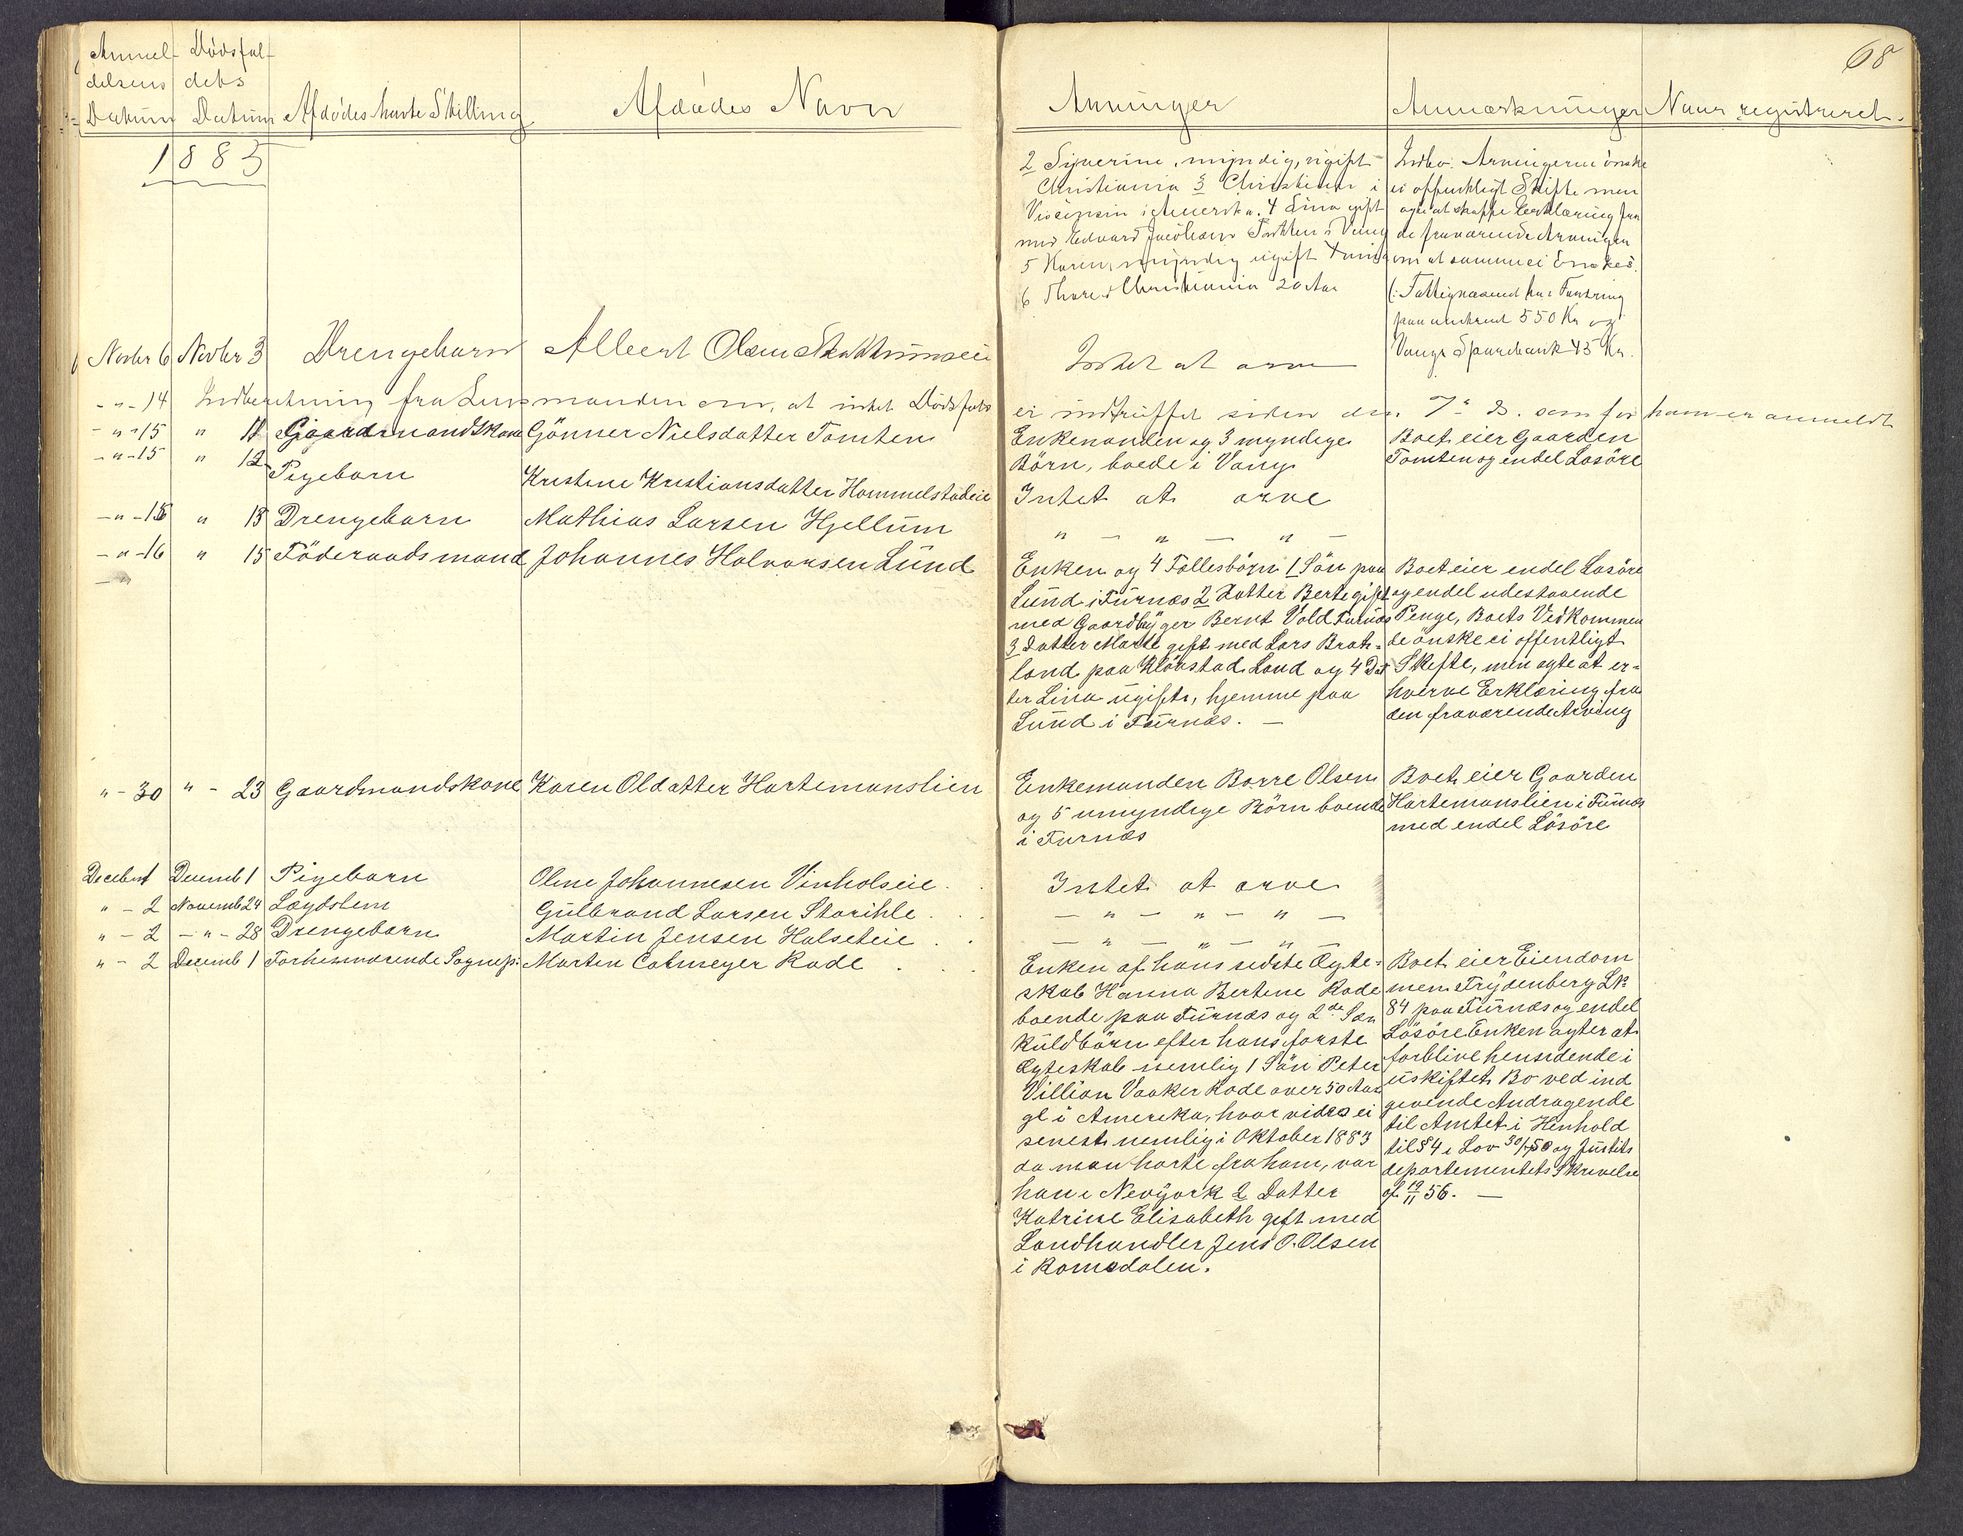 68
Anmel- Dødsfal-
delsens dets
Datum Datum Afdødes havte Stilling Afdødes Navn Arvinger Anmærkninger Naar registreret.
1883
2 Syverine, myndig, ugift
Christiania 3 Christian i
i Amerika. 4 Lina gift
med Edvard Jacobsen i Vang
5 Karen, myndig ugift
6 Thore i Christiania 20 Aar
Indbo. Arvingerne ønske
ei offentligt Skifte men
agte at skaffe Erklæring fra
de fraværende Arvinger
om at samme ei önskes.
(: Fattigvæsenet har Fordring
paa omtrent 550 Kr og
Vangs Sparebank 45 Kr.
Novbr 6 Novbr 3 Drengebarn Albert Olsen Intet at arve
- " - 14 Indberetning fra Lensmanden om, at intet Dödsfald
ei indtruffet siden den 7de ds. som for ham er anmeldt
- " - 15 " 11 Gaardmandskone Gönner Nielsdatter Tomten
Enkemanden og 3 myndige
Börn, boede i Vang
Boet eier Gaarden
Tomten og endel Lösöre
- " - 15 " 12 Pigebarn Kristine Kristiansdatter Hommelstadeie Intet at arve
- " - 15 " 13 Drengebarn Mathias Larsen Hjellum " - " - " -
- " - 16 " 15 Föderaadsmand Johannes Halvorsen Lund
- "
Enken og 4 Fællesbörn 1 Sön paa
Lund i Furnæs 2 Datter Berte gift
med Gaardbruger Bernt Vold Furnæs
3 Datter Marte gift med Lars Brat-
land paa Kloxstad Land og 4 Dat
ter Lina ugift, hjemme paa
Lund i Furnæs. -
Boet eier endel Lösöre
og endel udestaaende
Penge, Boets Vedkommen
de önske ei offentligt
Skifte, men agte at er-
hverve Erklæring fra
den fraværende Arving
" - 30 " - 23 Gaardmandskone Karen Oldatter Hartemanslien
Enkemanden Borre Olsen
og 5 umyndige Börn boende
i Furnæs
Boet eier Gaarden
Hartemanslien i Furnæs
med endel Lösöre
Decebr 1 Decemb 1 Pigebarn Oline Johannesen Vinholseie . . Intet at arve
" - 2 Novemb 24 Lægdslem Gulbrand Larsen Storihle . . . - " - " - " -
" - 2 - " - 28 Drengebarn Martin Jensen Halseteie . . - " - " - " -
" - 2 Decemb 1 Forhenværende Sognep: Morten Colmeyer Rode . . .
Enken af hans sidste Ægte-
skab Hanna Bertine Rode
boende paa Furnæs og 2de Sær
kuldbörn efter hans forste
Ægteskab nemlig 1 Sön Peter
Villian Vaaker Rode over 50 Aar
gl i Amerika, hvor vides ei
senest nemlig i Oktober 1883
da man hørte fra ham, var
han i Nevyork 2 Datter
Katrine Elisabeth gift med
Landhandler Jens O. Olsen
i Romsdalen.
Boet eier Eiendom
men Frydenberg L№
84 paa Furnæs og endel
Lösöre Enken agter at
forblive hensidende i
uskiftet Bo ved ind
givende Andragende
til Amtet i Henhold
til § 4 i Lov 30/7 50 og Justits
departementets Skrivelse
af 19/11 56. -